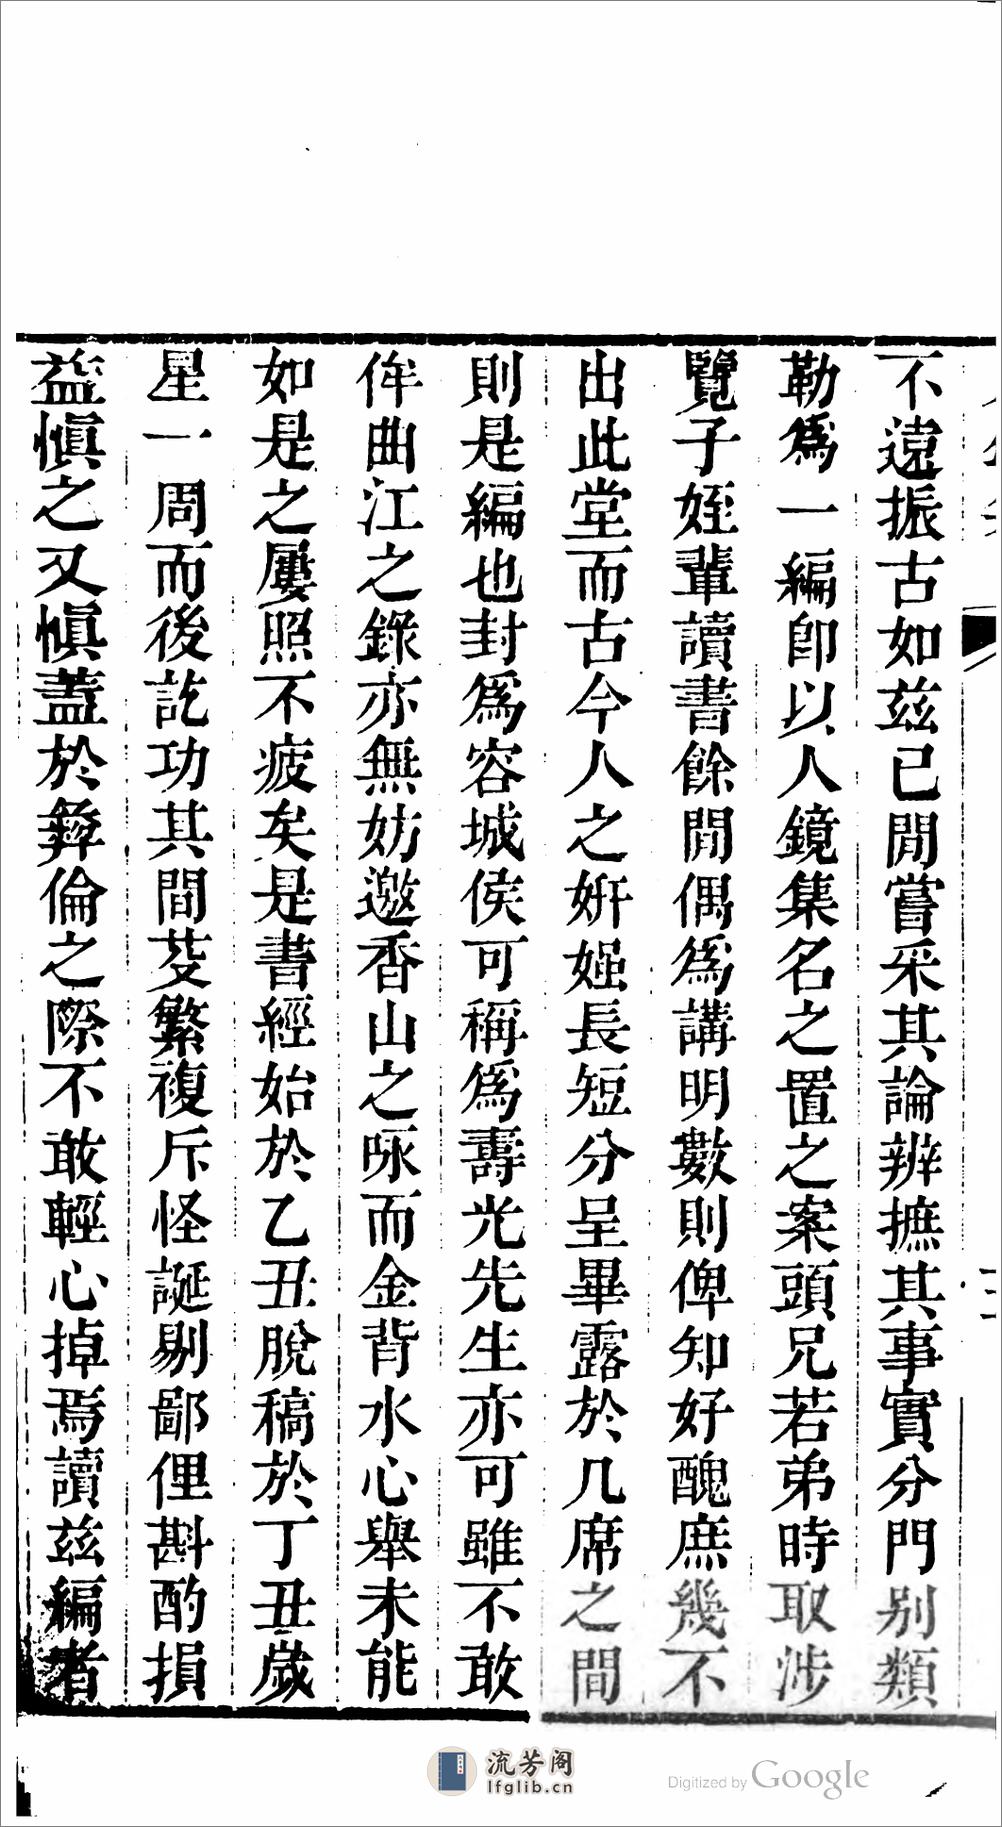 不遠振古如茲已閒嘗采其論辨摭其事實分門别類
勒爲一編卽以人鏡集名之置之案頭兄若弟時取涉
覽子姪輩讀書餘閒偶爲講明數則俾知好醜庶幾不
出此堂而古今人之妍媸長短分呈畢露於几席之間
則是編也封爲容城侯可稱爲壽光先生亦可雖不敢
侔曲江之錄亦無妨邀香山之咏而金背水心舉未能
如是之屢照不疲矣是書經始於乙丑脫稿於丁丑歲
星一周而後訖功其間芟繁複斥怪誕剔鄙俚斟酌損
益愼之又愼蓋於彝倫之際不敢輕心掉焉讀茲編者
流芳阁
lfglib.cn
Digitized by Google